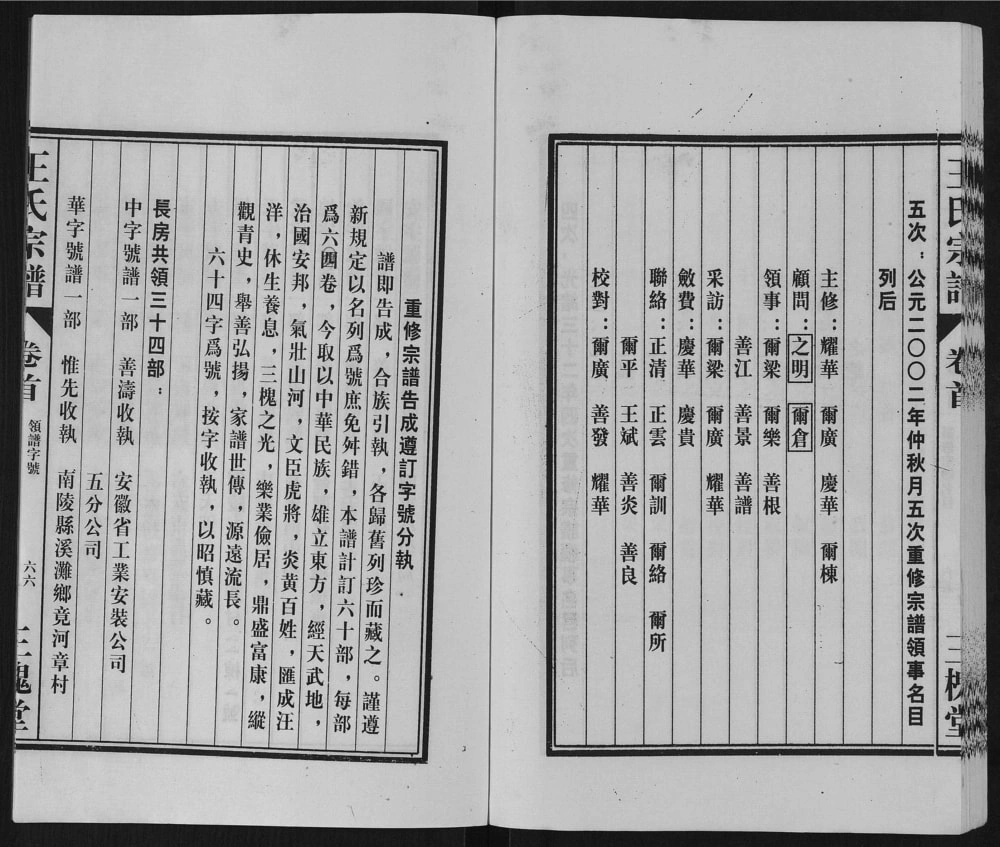 王氏宗譜
卷首
三槐堂
五次：公元二〇〇二年仲秋月五次重修宗譜領事名目
列后
主修：耀華 爾廣 慶華 爾棟
顧問：之明 爾倉
領事：爾梁 爾樂 善根
善江 善景 善譜
采訪：爾梁 爾廣 耀華
斂費：慶華 慶貴
聯絡：正清 正雲 爾訓 爾絡 爾所
爾平 王斌 善炎 善良
校對：爾廣 善發 耀華
重修宗譜告成遵訂字號分執
譜即告成，合族引執，各歸舊列珍而藏之。謹遵
新規定以名列爲號庶免舛錯，本譜計訂六十部，每部
爲六〇四卷，今取以中華民族，雄立東方，經天武地，
治國安邦，氣壯山河，文臣虎將，炎黃百姓，匯成汪
洋，休生養息，三槐之光，樂業儉居，鼎盛富康，縱
觀青史，舉善弘揚，家譜世傳，源遠流長。
六十四字爲號，按字收執，以昭慎藏。
長房共領三十四部：
中字號譜一部 善濤收執 安徽省工業安裝公司
五分公司
華字號譜一部 惟先收執 南陵縣溪灘鄉竟河章村
王氏宗譜
卷首
領譜字號
六六
三槐堂